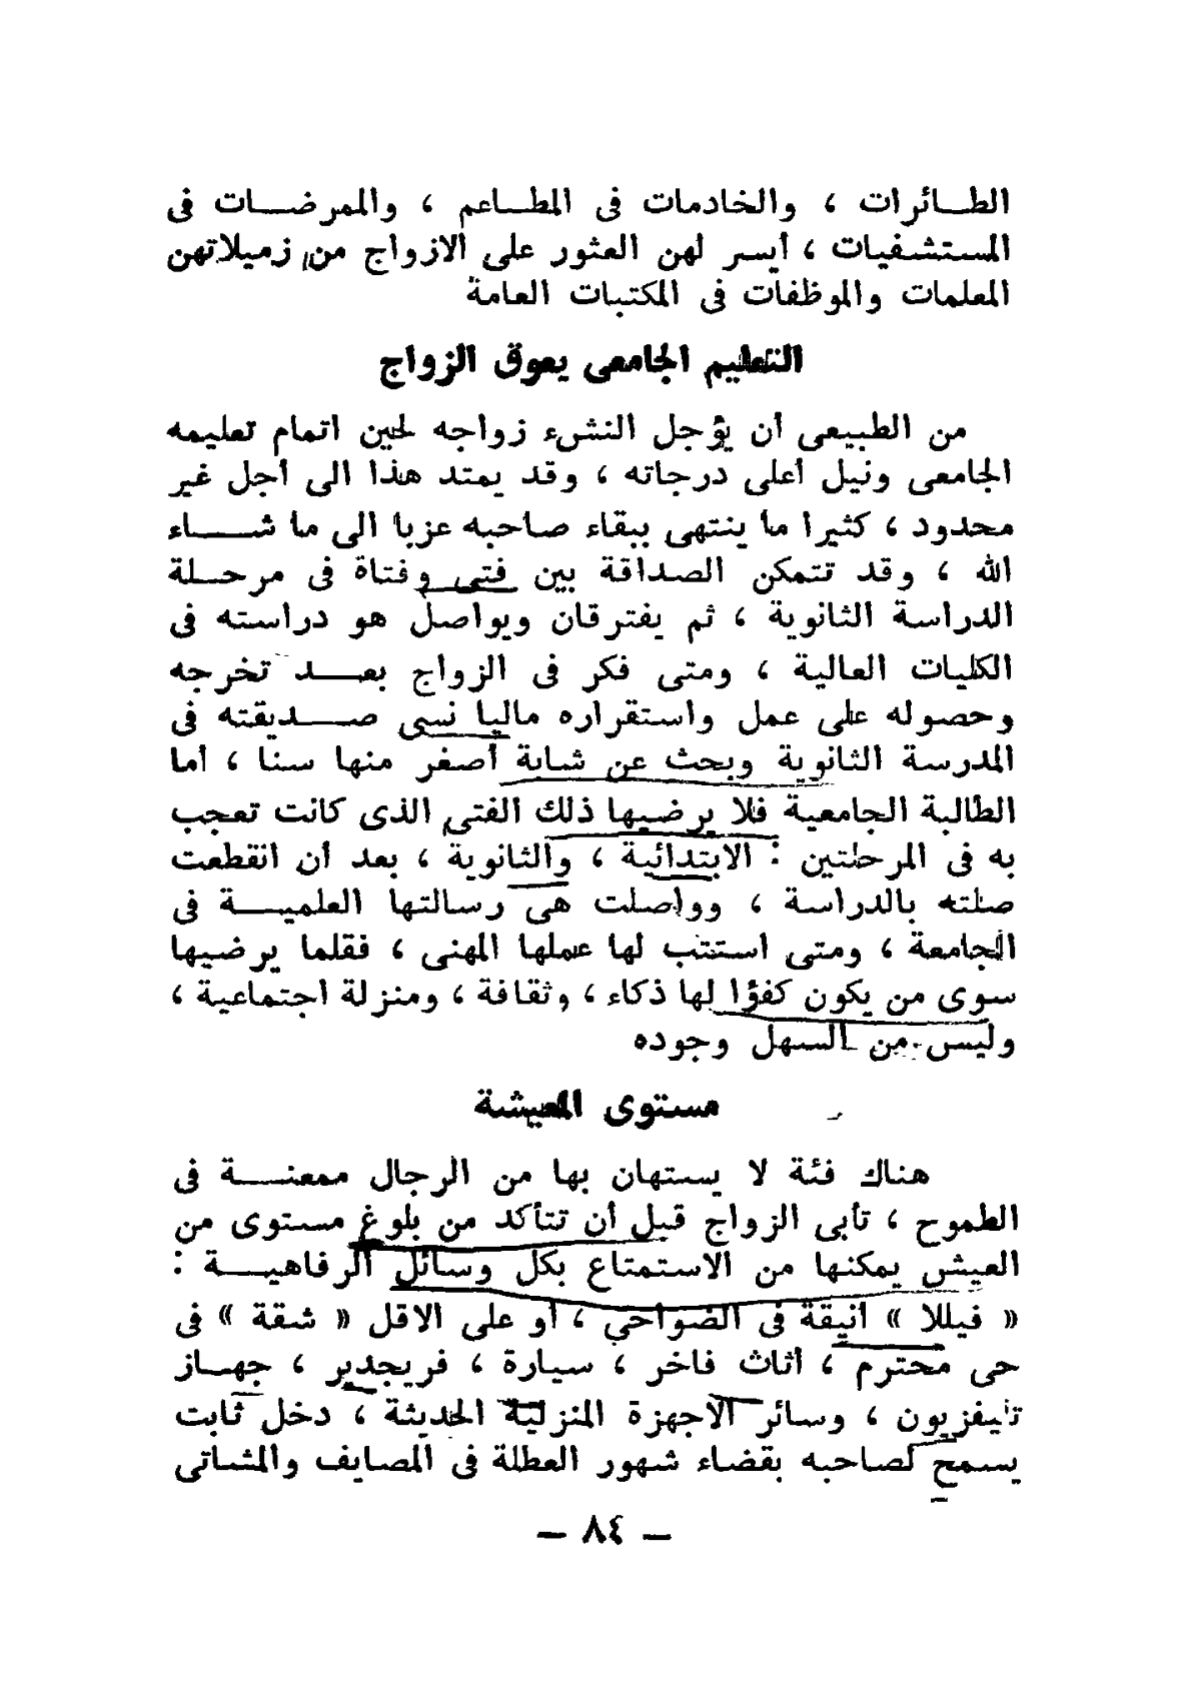 الطائرات ، والخادمات فى المطاعم ، والممرضات فى
المستشفيات ، أيسر لهن العثور على الازواج من زميلاتهن
المعلمات والموظفات فى المكتبات العامة
التعليم الجامعى يعوق الزواج
من الطبيعى أن يؤجل النشىء زواجه لحين اتمام تعليمه
الجامعى ونيل أعلى درجاته ، وقد يمتد هذا الى أجل غير
محدود ، كثيرا ما ينتهى ببقاء صاحبه عزبا الى ما شاء
الله ، وقد تتمكن الصداقة بين فتى وفتاة فى مرحلة
الدراسة الثانوية ، ثم يفترقان ويواصل هو دراسته فى
الكليات العالية ، ومتى فكر فى الزواج بعد تخرجه
وحصوله على عمل واستقراره ماليا نسى صديقته فى
المدرسة الثانوية وبحث عن شابة أصغر منها سنا ، أما
الطالبة الجامعية فلا يرضيها ذلك الفتى الذى كانت تعجب
به فى المرحلتين : الابتدائية ، والثانوية ، بعد أن انقطعت
صلته بالدراسة ، وواصلت هى رسالتها العلمية فى
الجامعة ، ومتى استتب لها عملها المهنى ، فقلما يرضيها
سوى من يكون كفؤا لها ذكاء ، وثقافة ، ومنزلة اجتماعية ،
وليس من السهل وجوده
مستوى المعيشة
هناك فئة لا يستهان بها من الرجال ممعنة فى
الطموح ، تأبى الزواج قبل أن تتأكد من بلوغ مستوى من
العيش يمكنها من الاستمتاع بكل وسائل الرفاهية :
« فيللا » أنيقة فى الضواحى ، أو على الاقل « شقة » فى
حى محترم ، أثاث فاخر ، سيارة ، فريجدير ، جهاز
تليفزيون ، وسائر الاجهزة المنزلية الحديثة ، دخل ثابت
يسمح لصاحبه بقضاء شهور العطلة فى المصايف والمشاتى
— ٨٤ —